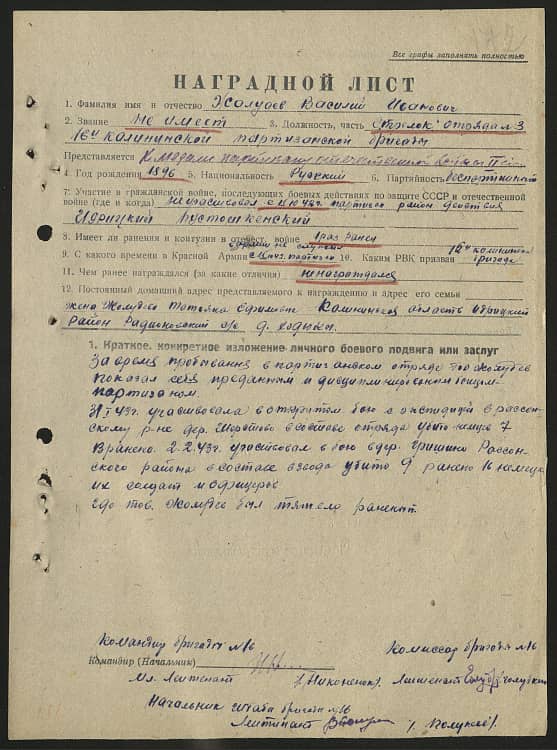 Все графы заполнять полностью
НАГРАДНОЙ ЛИСТ
1. Фамилия имя и отчество Жолудев Василий Иванович
2. Звание Не имеет 3. Должность, часть Стрелок отряда №3
16й калининской партизанской бригады
Представляется К медали партизану отечественной войны II
4. Год рождения 1896 5. Национальность Русский 6. Партийность беспартийный
7. Участие в гражданской войне, последующих боевых действиях по защите СССР и отечественной
войне (где и когда) 42г. партизан район действия
Идрицкий Пустошкенский
8. Имеет ли ранения и контузии в отечест. войне 1 раз ранен
9. С какого времени в Красной Армии 10. Каким РВК призван бригада
11. Чем ранее награждался (за какие отличия) не награждался
12. Постоянный домашний адрес представляемого к награждению и адрес его семьи
жена Жолудева Татьяна Калининская область Идрицкий
район с/с д.
1. Краткое, конкретное изложение личного боевого подвига или заслуг
За время пребывания в партизанском отряде тов Жолудев
показал себя преданным и дисциплинированным бойцом-
партизаном.
43г. участвовал в открытом бою с экспедицией в россон-
ском р-не дер. в составе отряда убито немцев 7
Вранено. 2.2.43г. участвовал в бою в дер. Гришино Россон-
ского района в составе взвода убито 9 ранено 16 немец
их солдат и офицеров
где тов. Жолудев был тяжело раненый.
Командир бригады №16 Комиссар бригады №16
Командир (Начальник)
Мл. Лейтенант Лейтенант
Начальник штаба бригады №16
Лейтенант